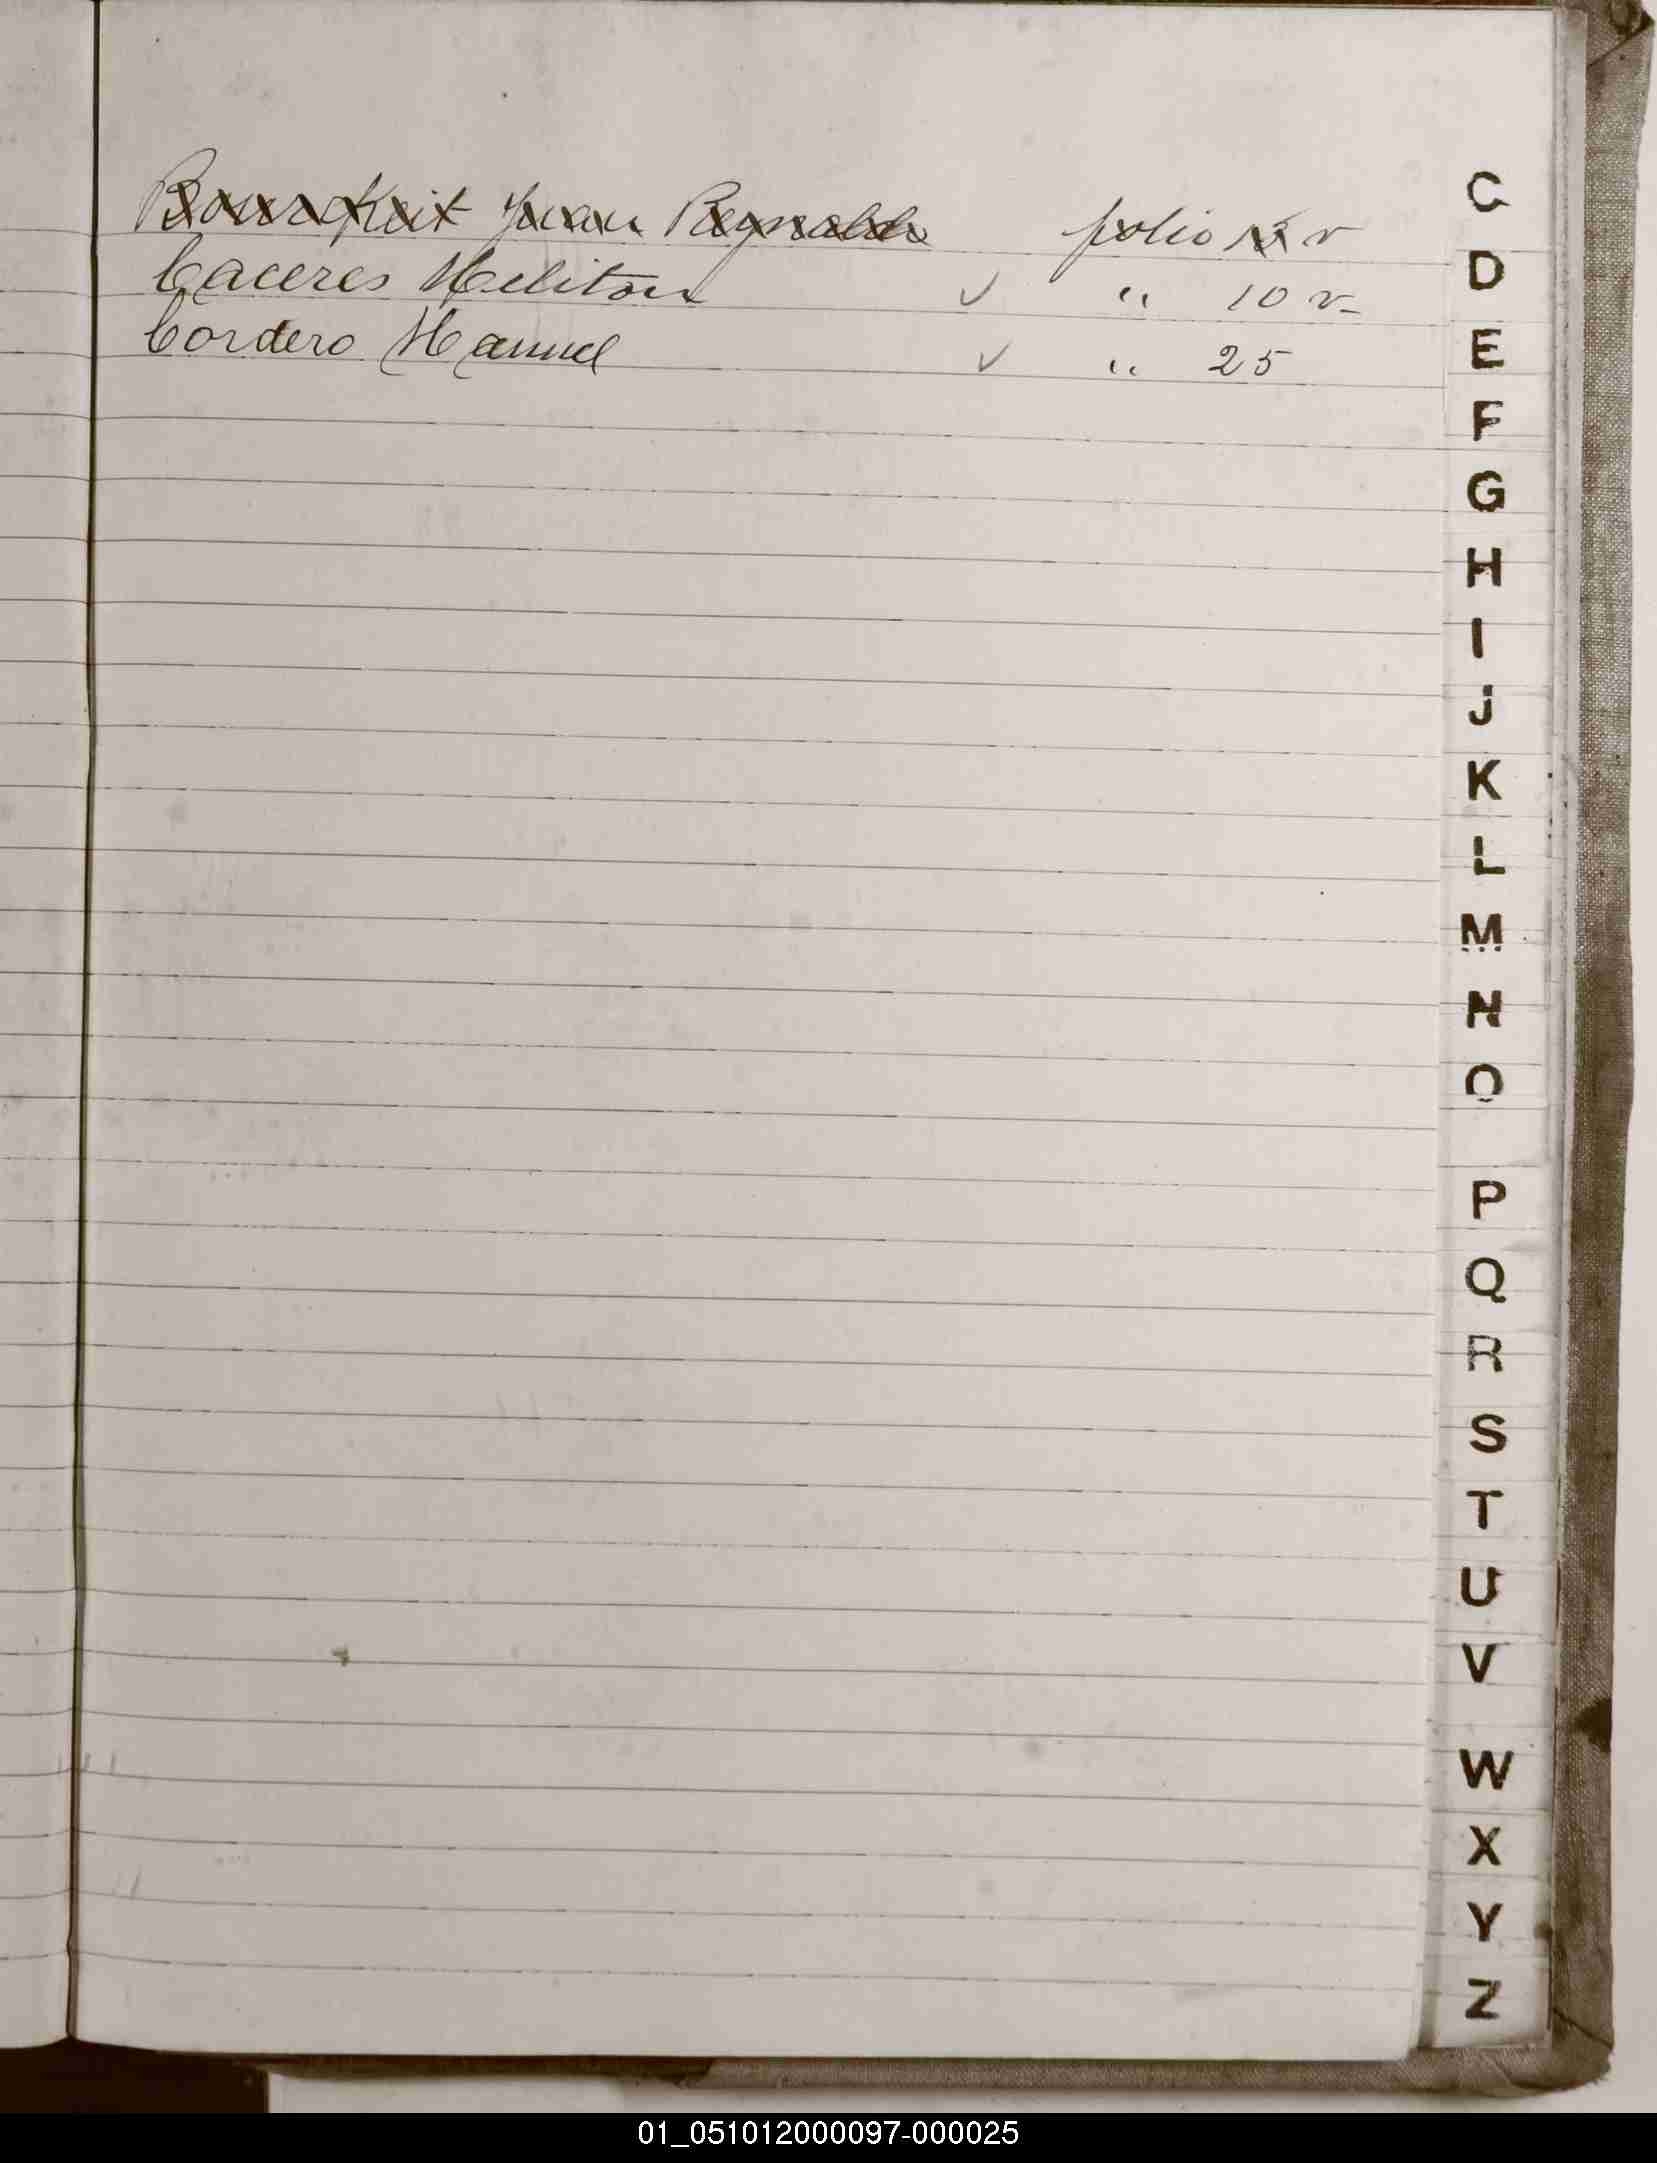 Juan Reynaldo folio 13 v
Caceres Meliton ✓ " 10 v_
Cordero Manuel ✓ " 25
C
D
E
F
G
H
I
J
K
L
M
N
O
P
Q
R
S
T
U
V
W
X
Y
Z
01_051012000097-000025